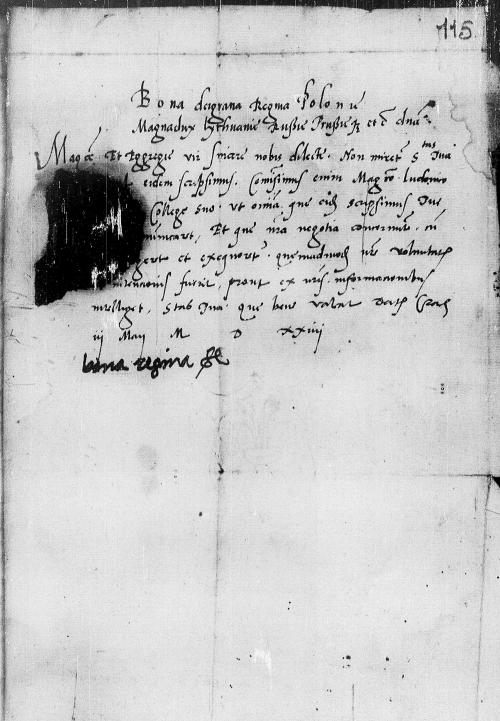 115
Bona dei grana Regina Polonie
Magnadux Lythuanie Russie Prussie et c dna
Magce Et Egregie vir sincere nobis dilecte. Non miret S tas Tua
eidem scripsimus. Comisimus enim Mag co Ludovico
College suo. ut omia, que eidem scripsimus Tue
municaret, Et que nra negotia concernunt, cu
et exequatur. quemadmodum nre voluntatis
intentionis fuerit, prout ex nris informationibus
intelliget, Stas Tua. que bene valeat Dat Crac
iij Maij M D XXiiij
bona regina